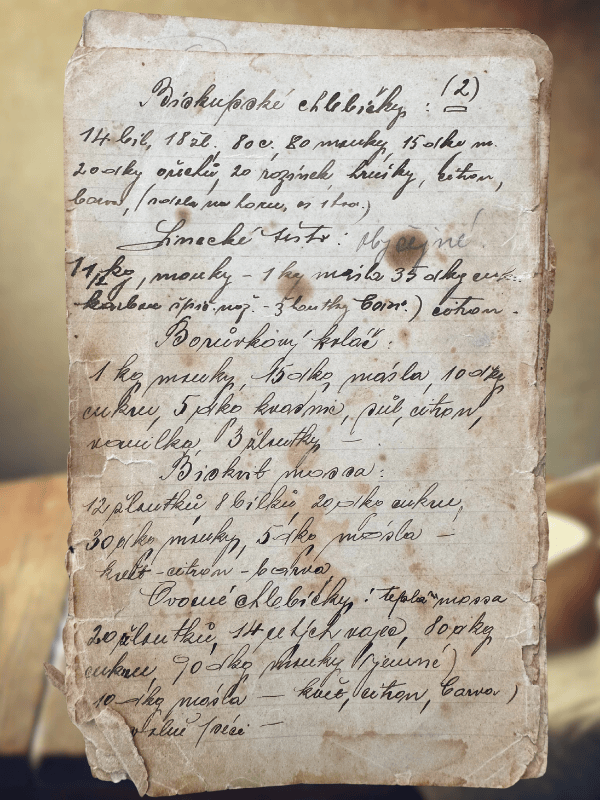 Biskupské chlebíčky : (2)
14 bil, 18 žl, 80 c. 80 mouky, 15 dkg m.
20 dkg ořechů, 20 rozinek hrušky, citron,
barva,
Linecké těsto : obyčejné
mouky – 1 kg másla 35 dkg
žloutky barv.) citron.
Borůvkový koláč :
1 kg mouky, 15 dkg másla, 10 dkg
cukru, 5 dkg kvasnic, sůl, citron,
vanilka, 3 žloutky –
Biskvit massa :
12 žloutků 8 bílků, 20 dkg cukru,
30 dkg mouky, 5 dkg másla –
květ – citron – barva
Ovocné chlebíčky : teplá massa
20 žloutků, 14 celých vajec, 80 dkg
cukru, 90 dkg mouky (jemné)
10 dkg másla – květ, citron, barva)
volně péci –